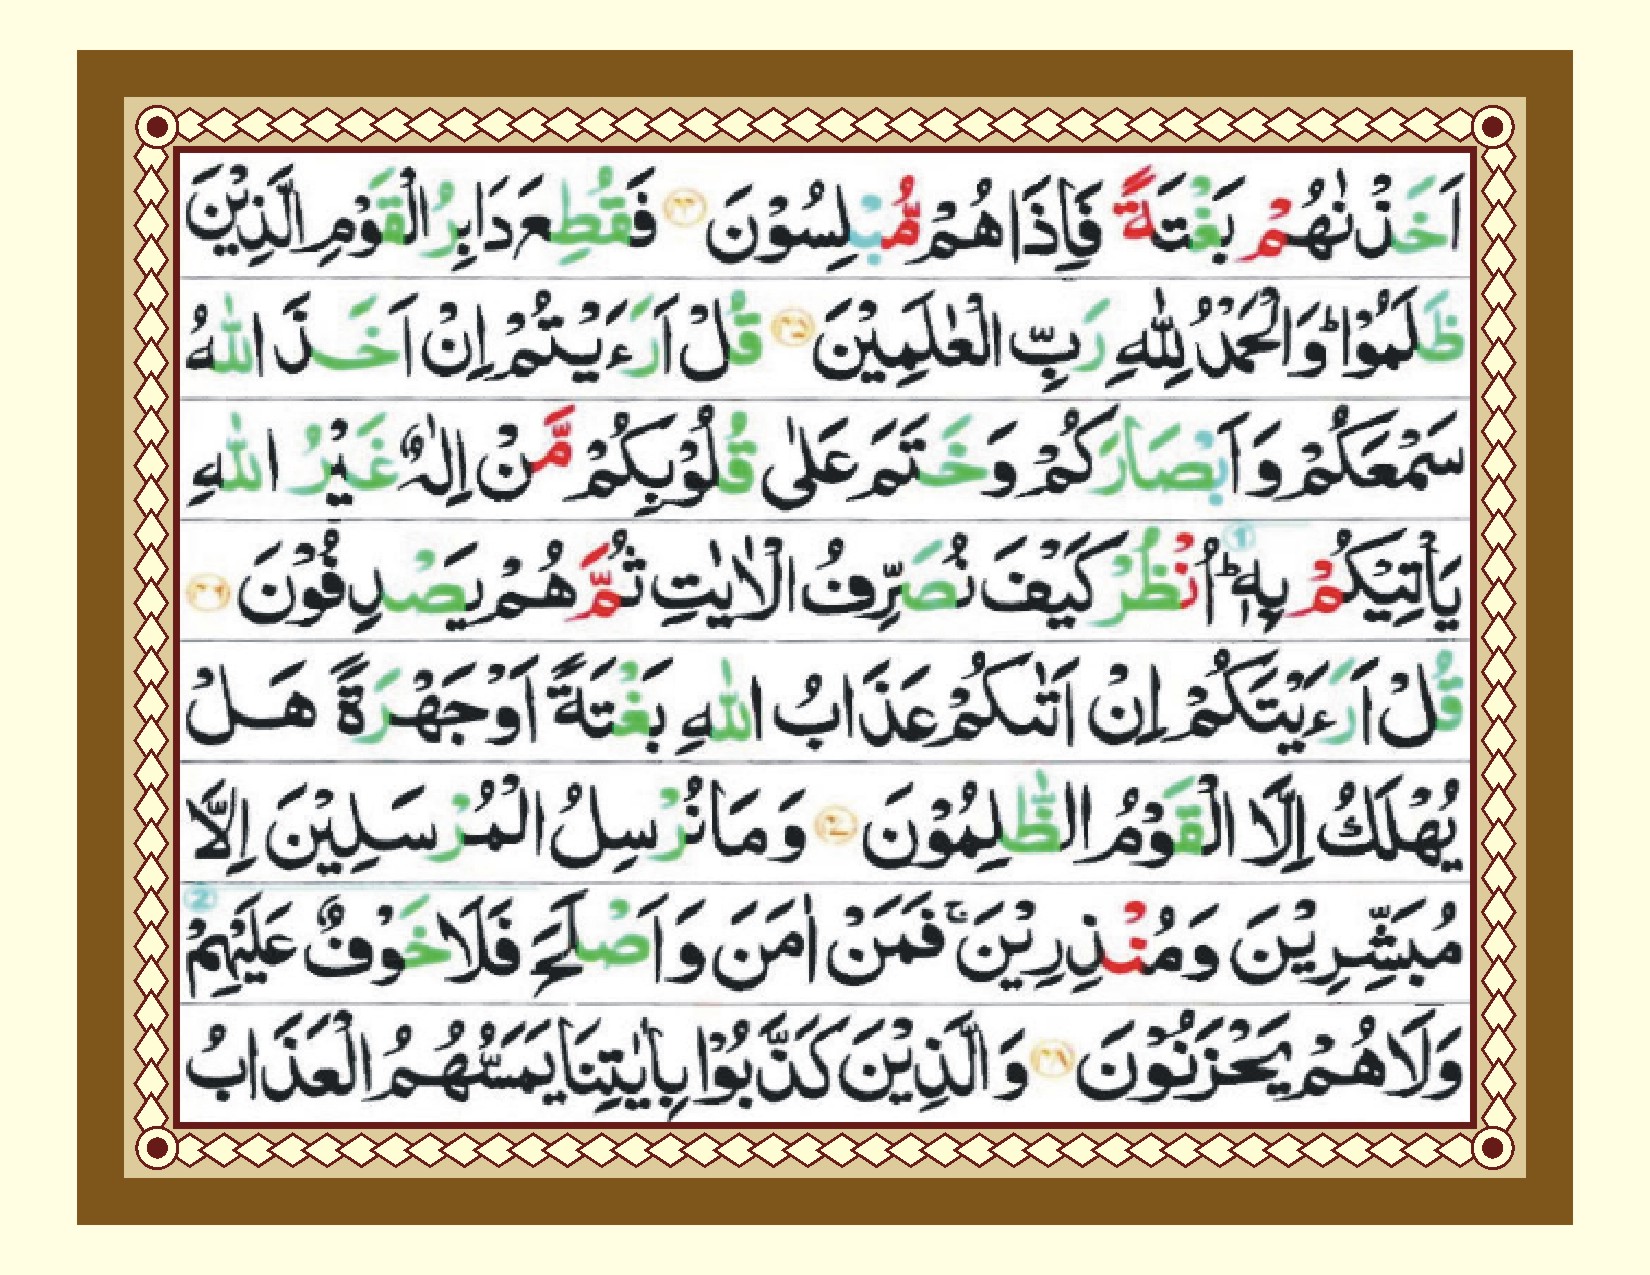 اَخَذۡنٰهُمۡ بَغۡتَةً فَاِذَا هُمۡ مُّبۡلِسُوۡنَ ﴿۴۴﴾ فَقُطِعَ دَابِرُ الۡقَوۡمِ الَّذِيۡنَ
ظَلَمُوۡا ؕ وَالۡحَمۡدُ لِلّٰهِ رَبِّ الۡعٰلَمِيۡنَ ﴿۴۵﴾ قُلۡ اَرَءَيۡتُمۡ اِنۡ اَخَذَ اللّٰهُ
سَمۡعَكُمۡ وَاَبۡصَارَكُمۡ وَخَتَمَ عَلٰى قُلُوۡبِكُمۡ مَّنۡ اِلٰهٌ غَيۡرُ اللّٰهِ
يَاۡتِيۡكُمۡ بِهٖ ؕ ① اُنْظُرۡ كَيۡفَ نُصَرِّفُ الۡاٰيٰتِ ثُمَّ هُمۡ يَصۡدِفُوۡنَ ﴿۴۶﴾
قُلۡ اَرَءَيۡتَكُمۡ اِنۡ اَتٰٮكُمۡ عَذَابُ اللّٰهِ بَغۡتَةً اَوۡ جَهۡرَةً هَلۡ
يُهۡلَكُ اِلَّا الۡقَوۡمُ الظّٰلِمُوۡنَ ﴿۴۷﴾ وَمَا نُرۡسِلُ الۡمُرۡسَلِيۡنَ اِلَّا
مُبَشِّرِيۡنَ وَمُنۡذِرِيۡنَ ۚ فَمَنۡ اٰمَنَ وَاَصۡلَحَ فَلَا خَوۡفٌ عَلَيۡهِمۡ ②
وَلَا هُمۡ يَحۡزَنُوۡنَ ﴿۴۸﴾ وَالَّذِيۡنَ كَذَّبُوۡا بِاٰيٰتِنَا يَمَسُّهُمُ الۡعَذَابُ